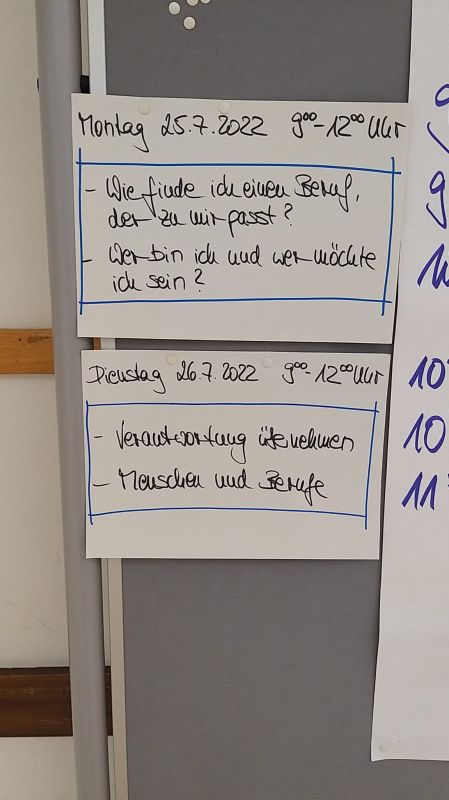 Montag 25.7.2022 9⁰⁰-12⁰⁰ Uhr
- Wie finde ich einen Beruf,
der zu mir passt?
- Wer bin ich und wer möchte
ich sein?
Dienstag 26.7.2022 9⁰⁰-12⁰⁰ Uhr
- Verantwortung übernehmen
- Menschen und Berufe
9
10
10
11